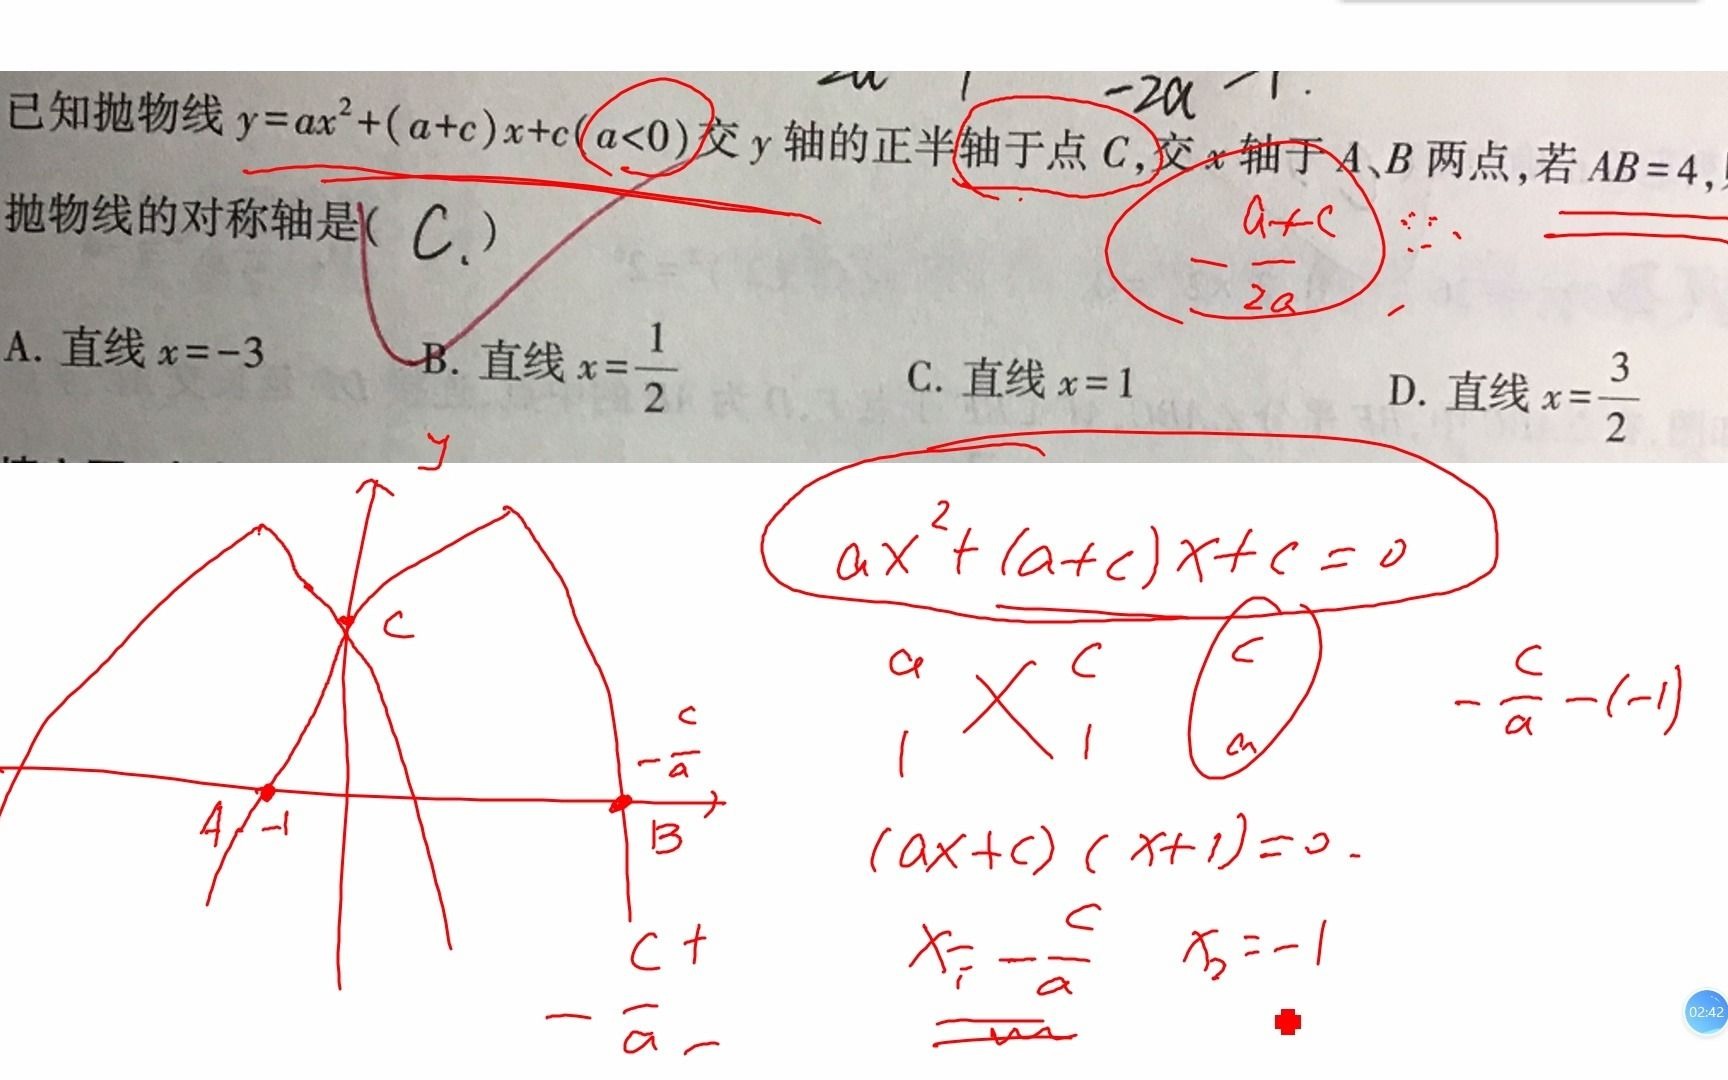 -2a -1.
已知抛物线 y=ax²+(a+c)x+c(a<0)交 y 轴的正半轴于点 C,交 x 轴于 A、B 两点,若 AB=4,
抛物线的对称轴是( C. )
- a+c/2a
A. 直线 x=-3 B. 直线 x=1/2 C. 直线 x=1 D. 直线 x=3/2
y
ax²+(a+c)x+c=0
C
a c c
1 1 a
-c/a-(-1)
-c/a
A -1 B
(ax+c)(x+1)=0.
c +
- c/a
x₁=-c/a x₂=-1
02:42